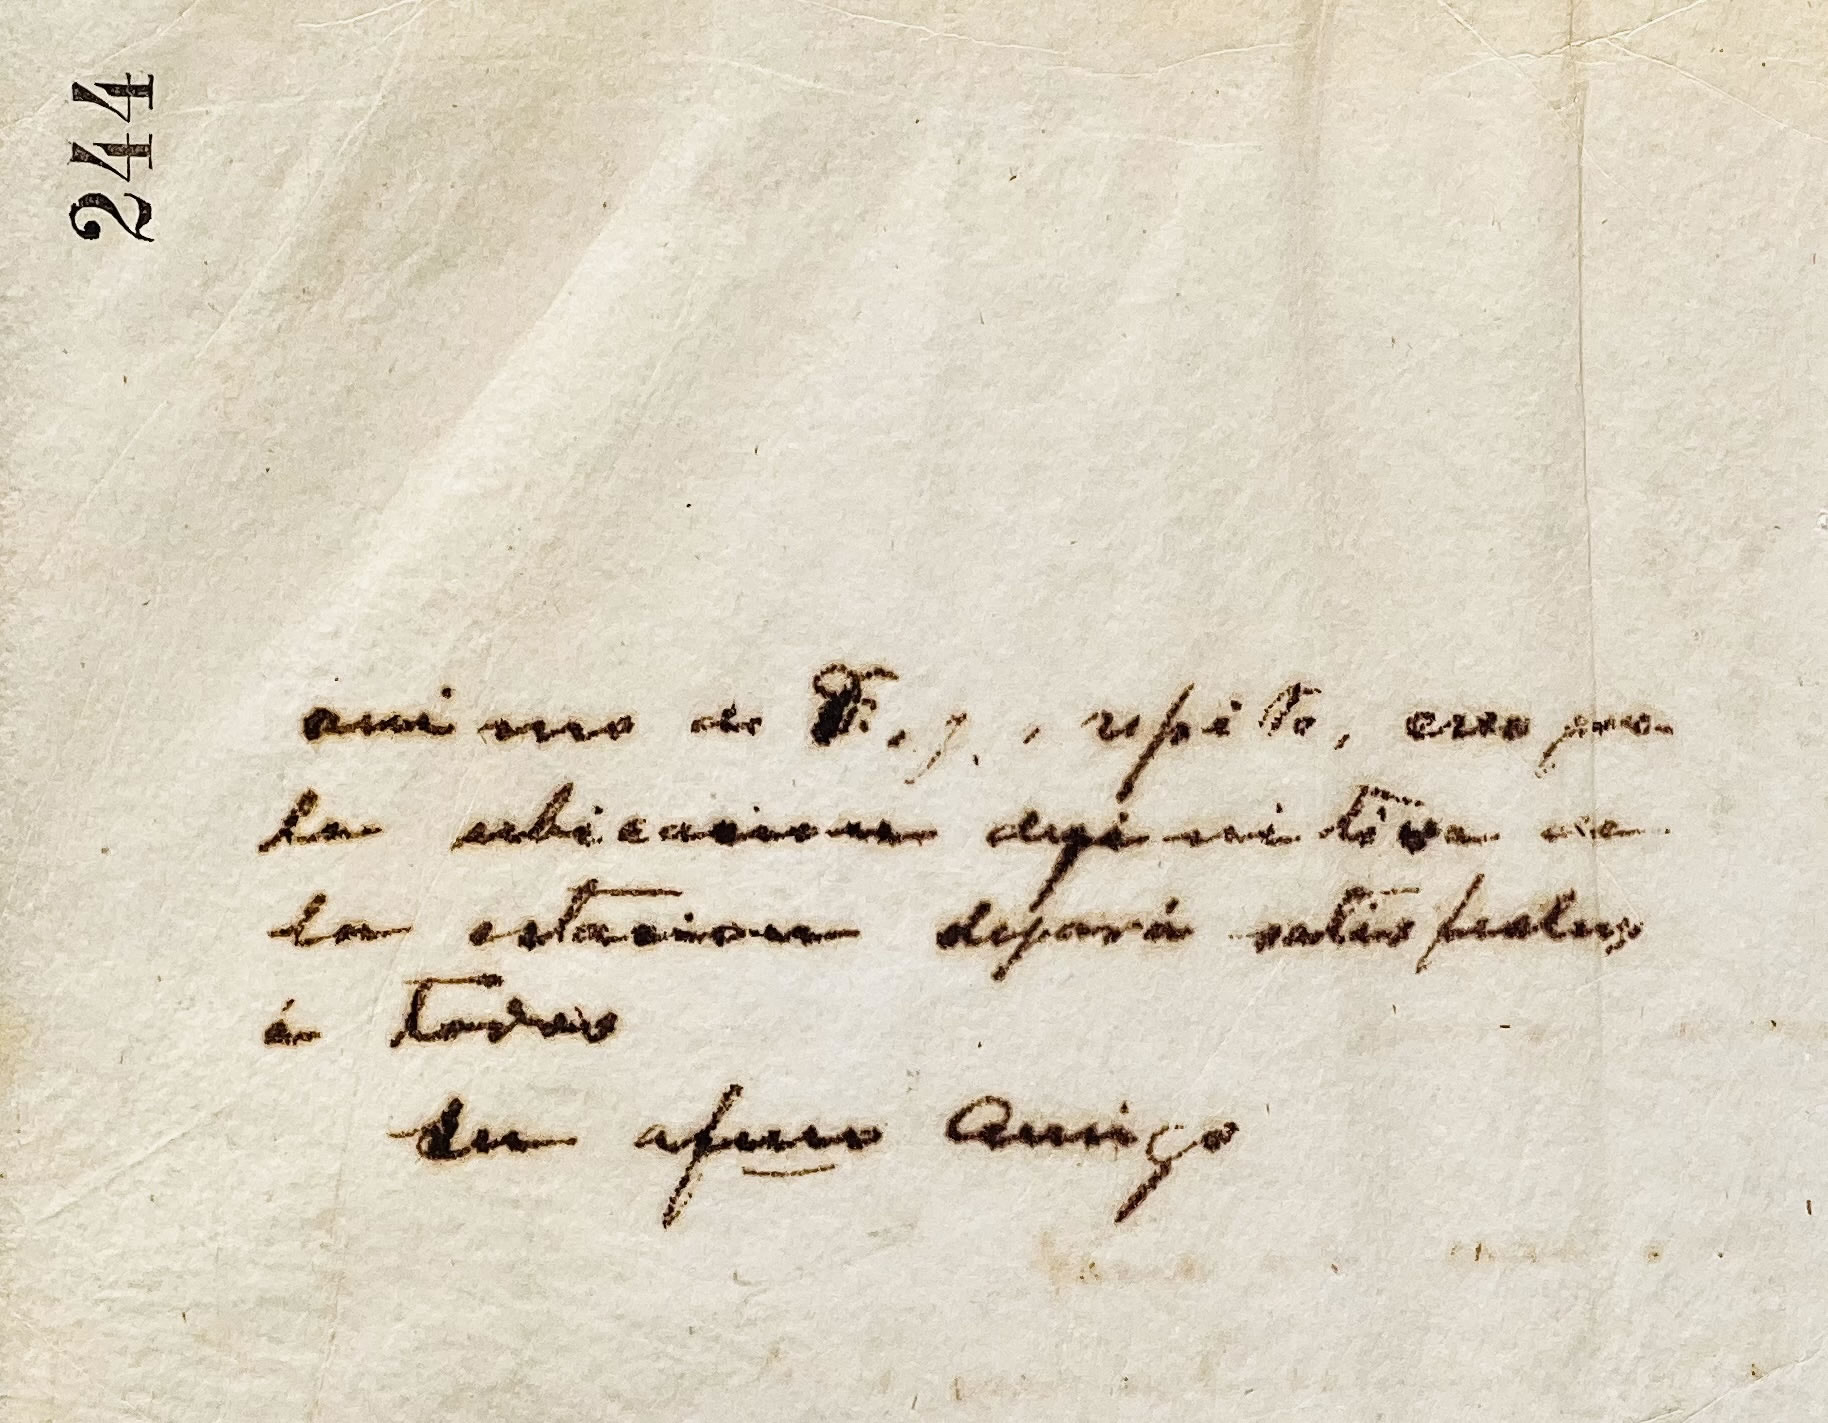 244
animo de F. y., repito, creo que
la ubicacion definitiva de
la estacion dejará satisfechos
á todos
Su afmo Amigo